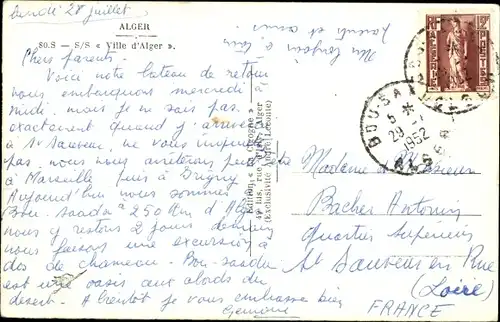 Lundi 28 juillet
ALGER
80.S — S/S « Ville d'Alger ».
Chers parents.
Voici notre bateau de retour
nous embarquons mercredi à
midi, mais je ne sais pas
exactement quand j'arriverai
à St Sauveur, ne vous inquiétez
pas, nous nous arrêterons peut-être
à Marseille puis à Grigny
Aujourd'hui nous sommes
Bou-saada à 250 Km d'Alger
nous y restons 2 jours demain
nous faisons une excursion à
dos de chameau — Bou-saada
est une oasis aux abords du
désert — A bientôt je vous embrasse bien
parents et amis
ALGERIE
POSTES
BOU-SAADA
5 *
29 -7
1952
ALGER
Edition
49 bis, rue
Alger
(Exclusivité
Madame et Monsieur
Bacher Antonin
Quartier Supérieur
St Sauveur en Rue
(Loire)
FRANCE